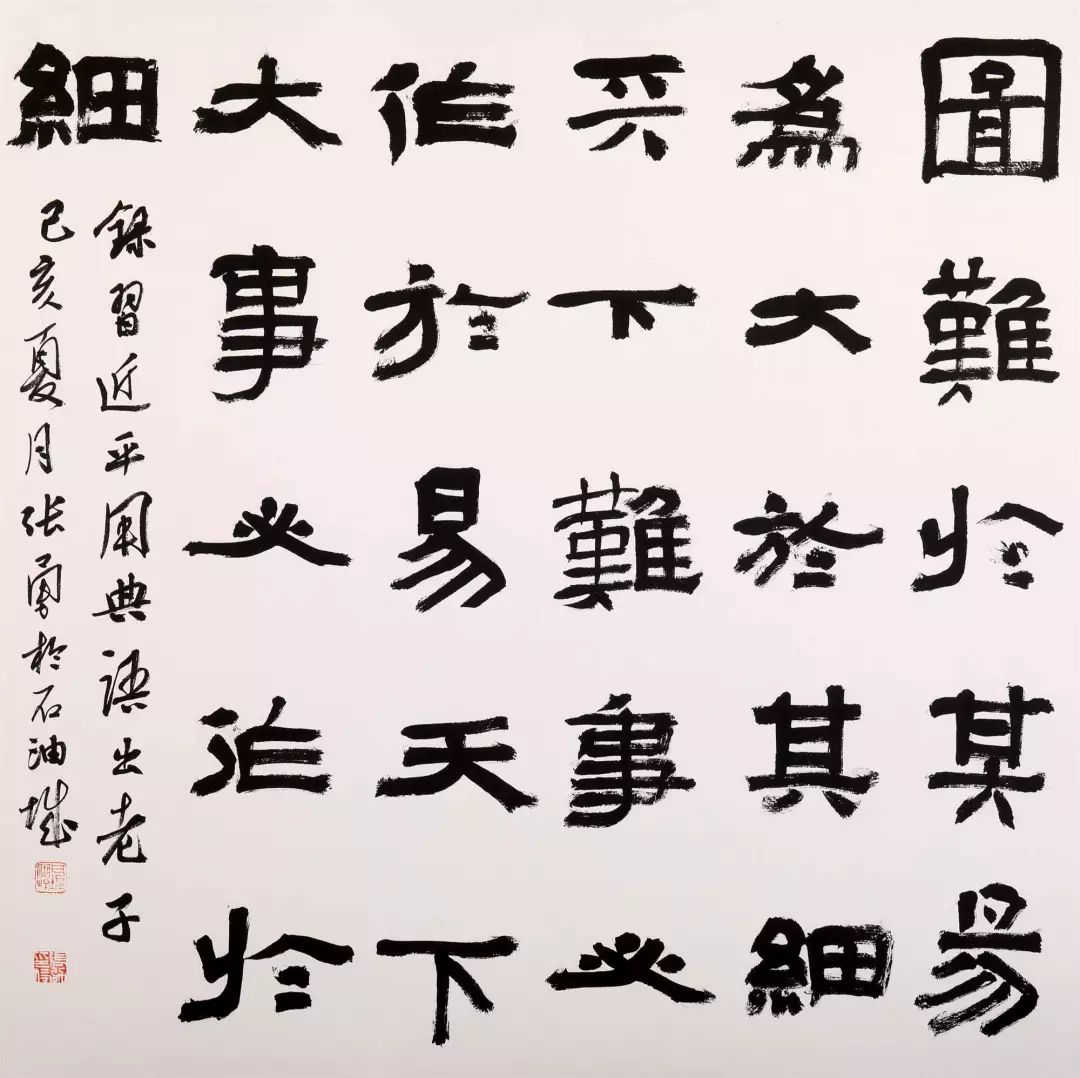 圖難於其易
為大於其細
天下難事必
作於易天下
大事必作於
細
錄習近平用典語出老子
己亥夏月张勇於石油城